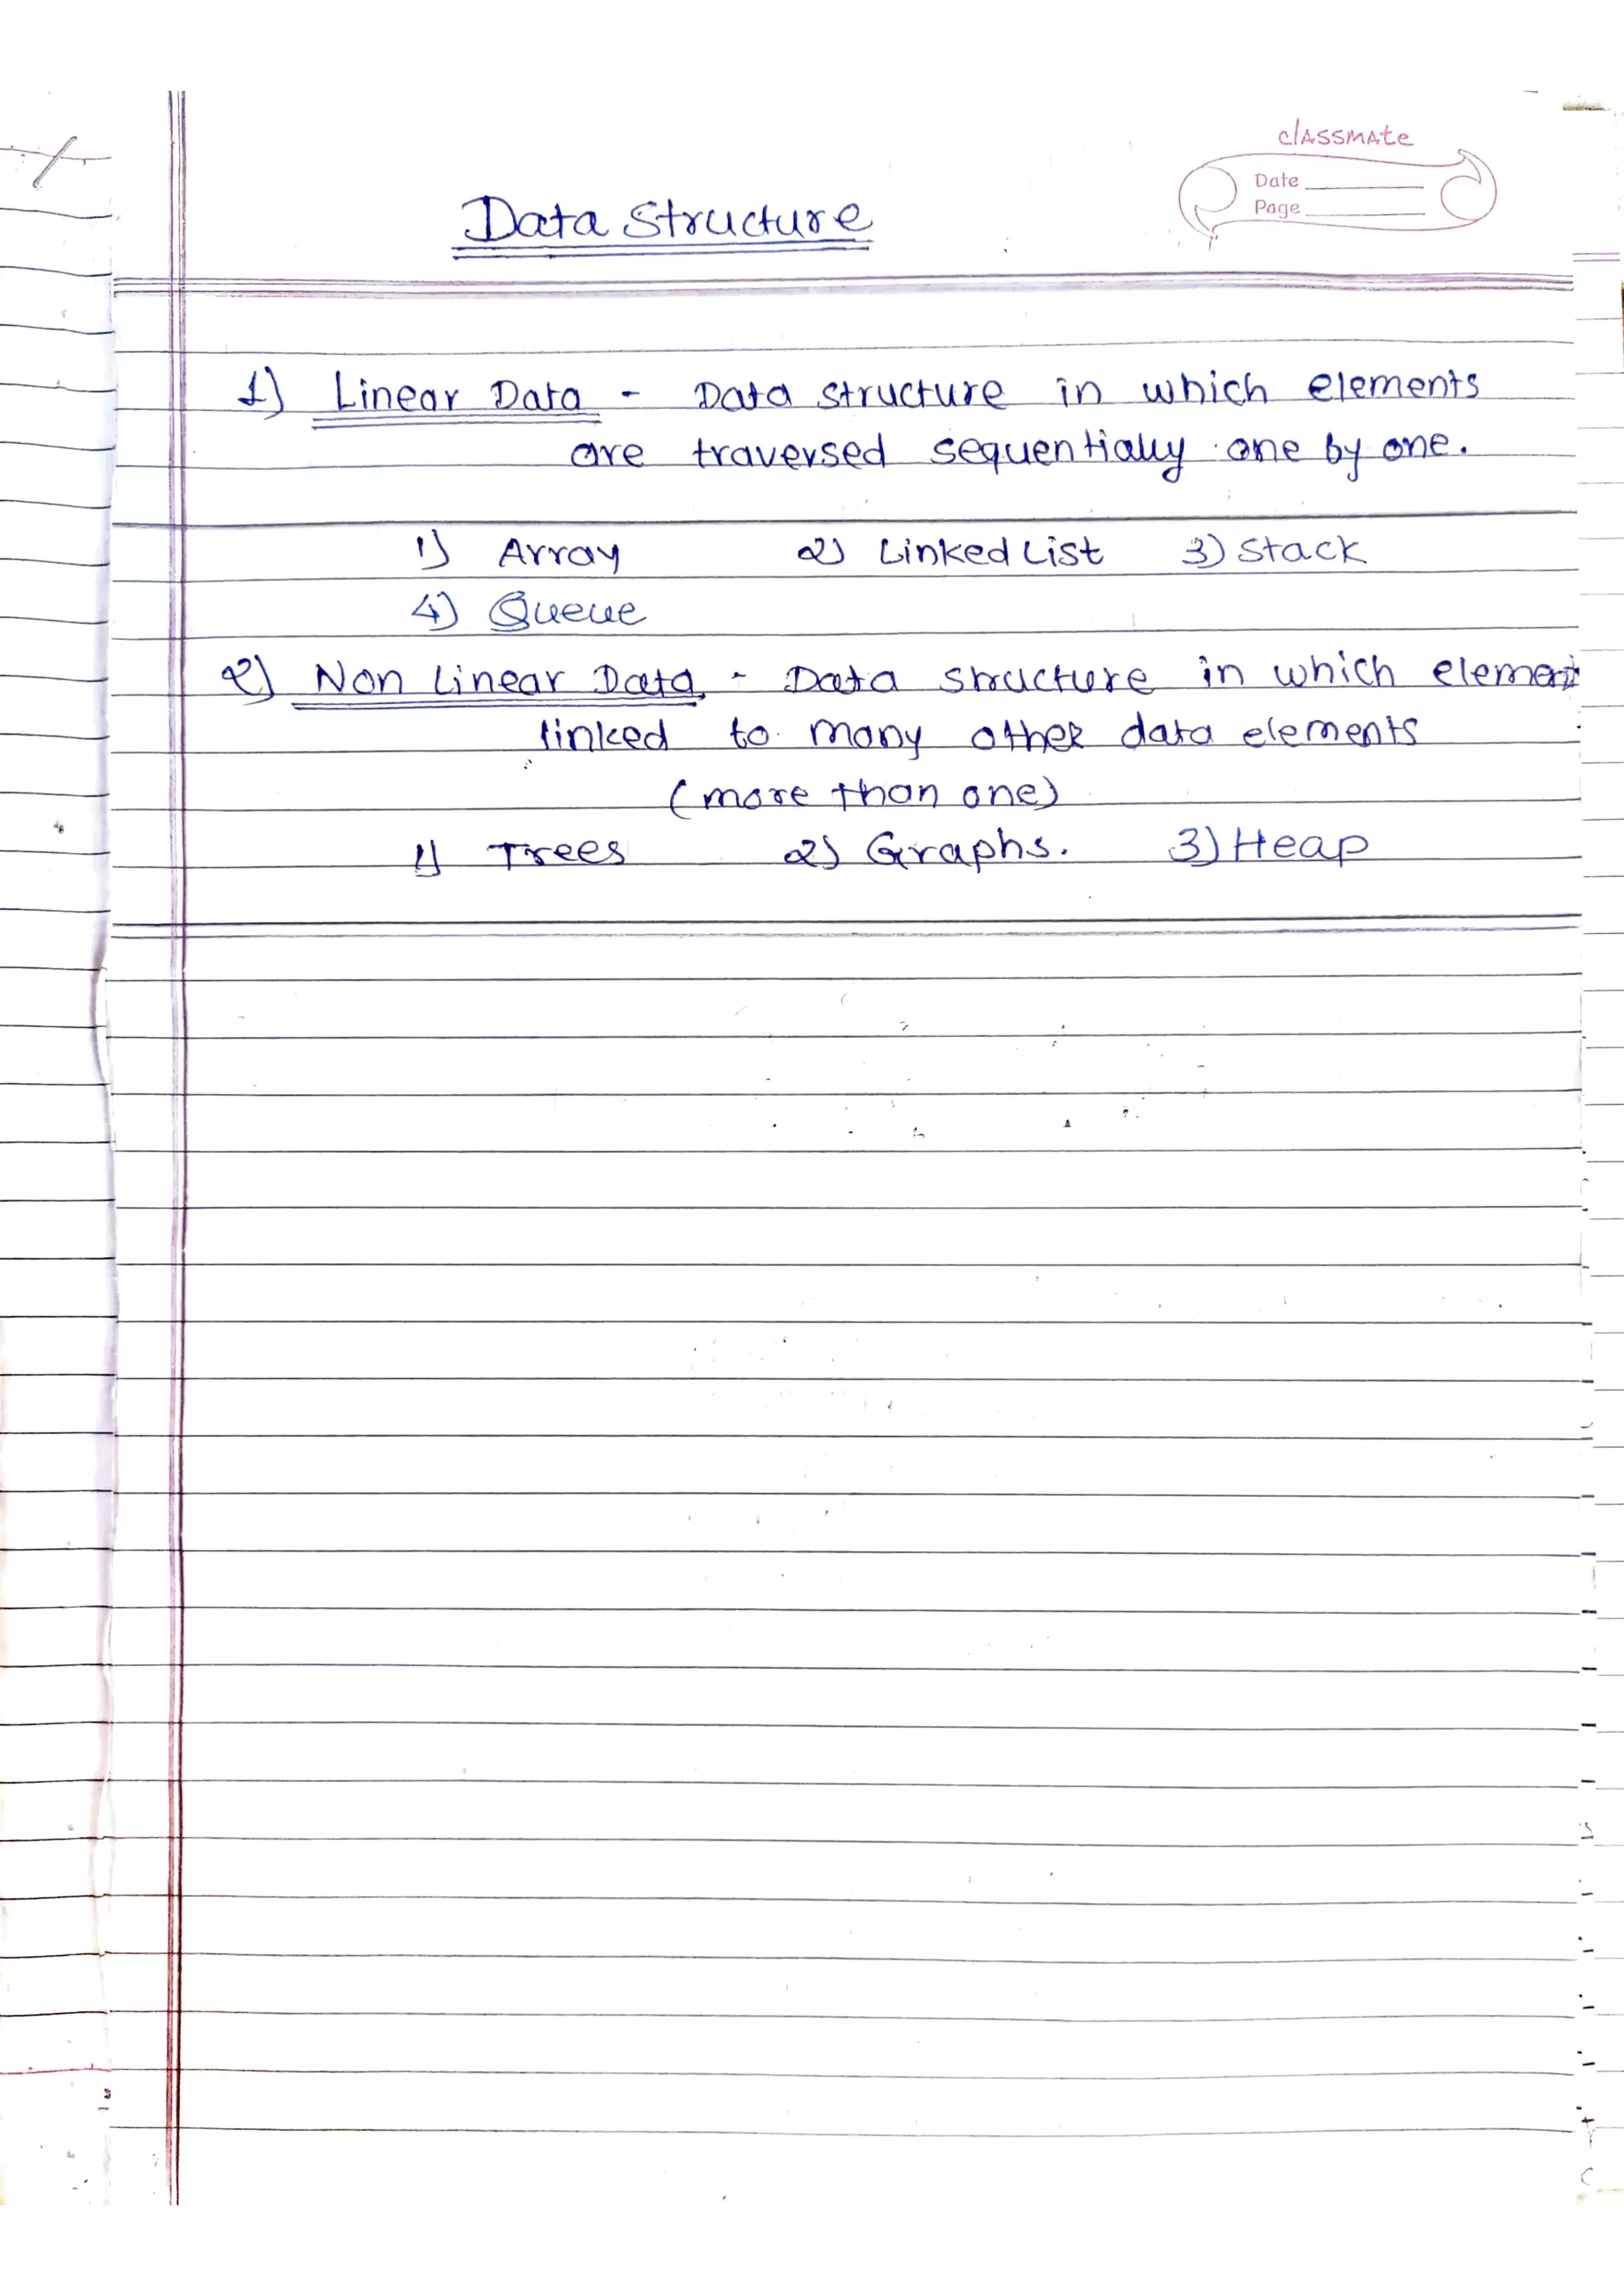 classmate
Date
Page
Data Structure
1) Linear Data - Data structure in which elements
are traversed sequentially one by one.
1) Array 2) Linked List 3) Stack
4) Queue
2) Non Linear Data - Data structure in which element
linked to many other data elements
(more than one)
1) Trees 2) Graphs. 3) Heap